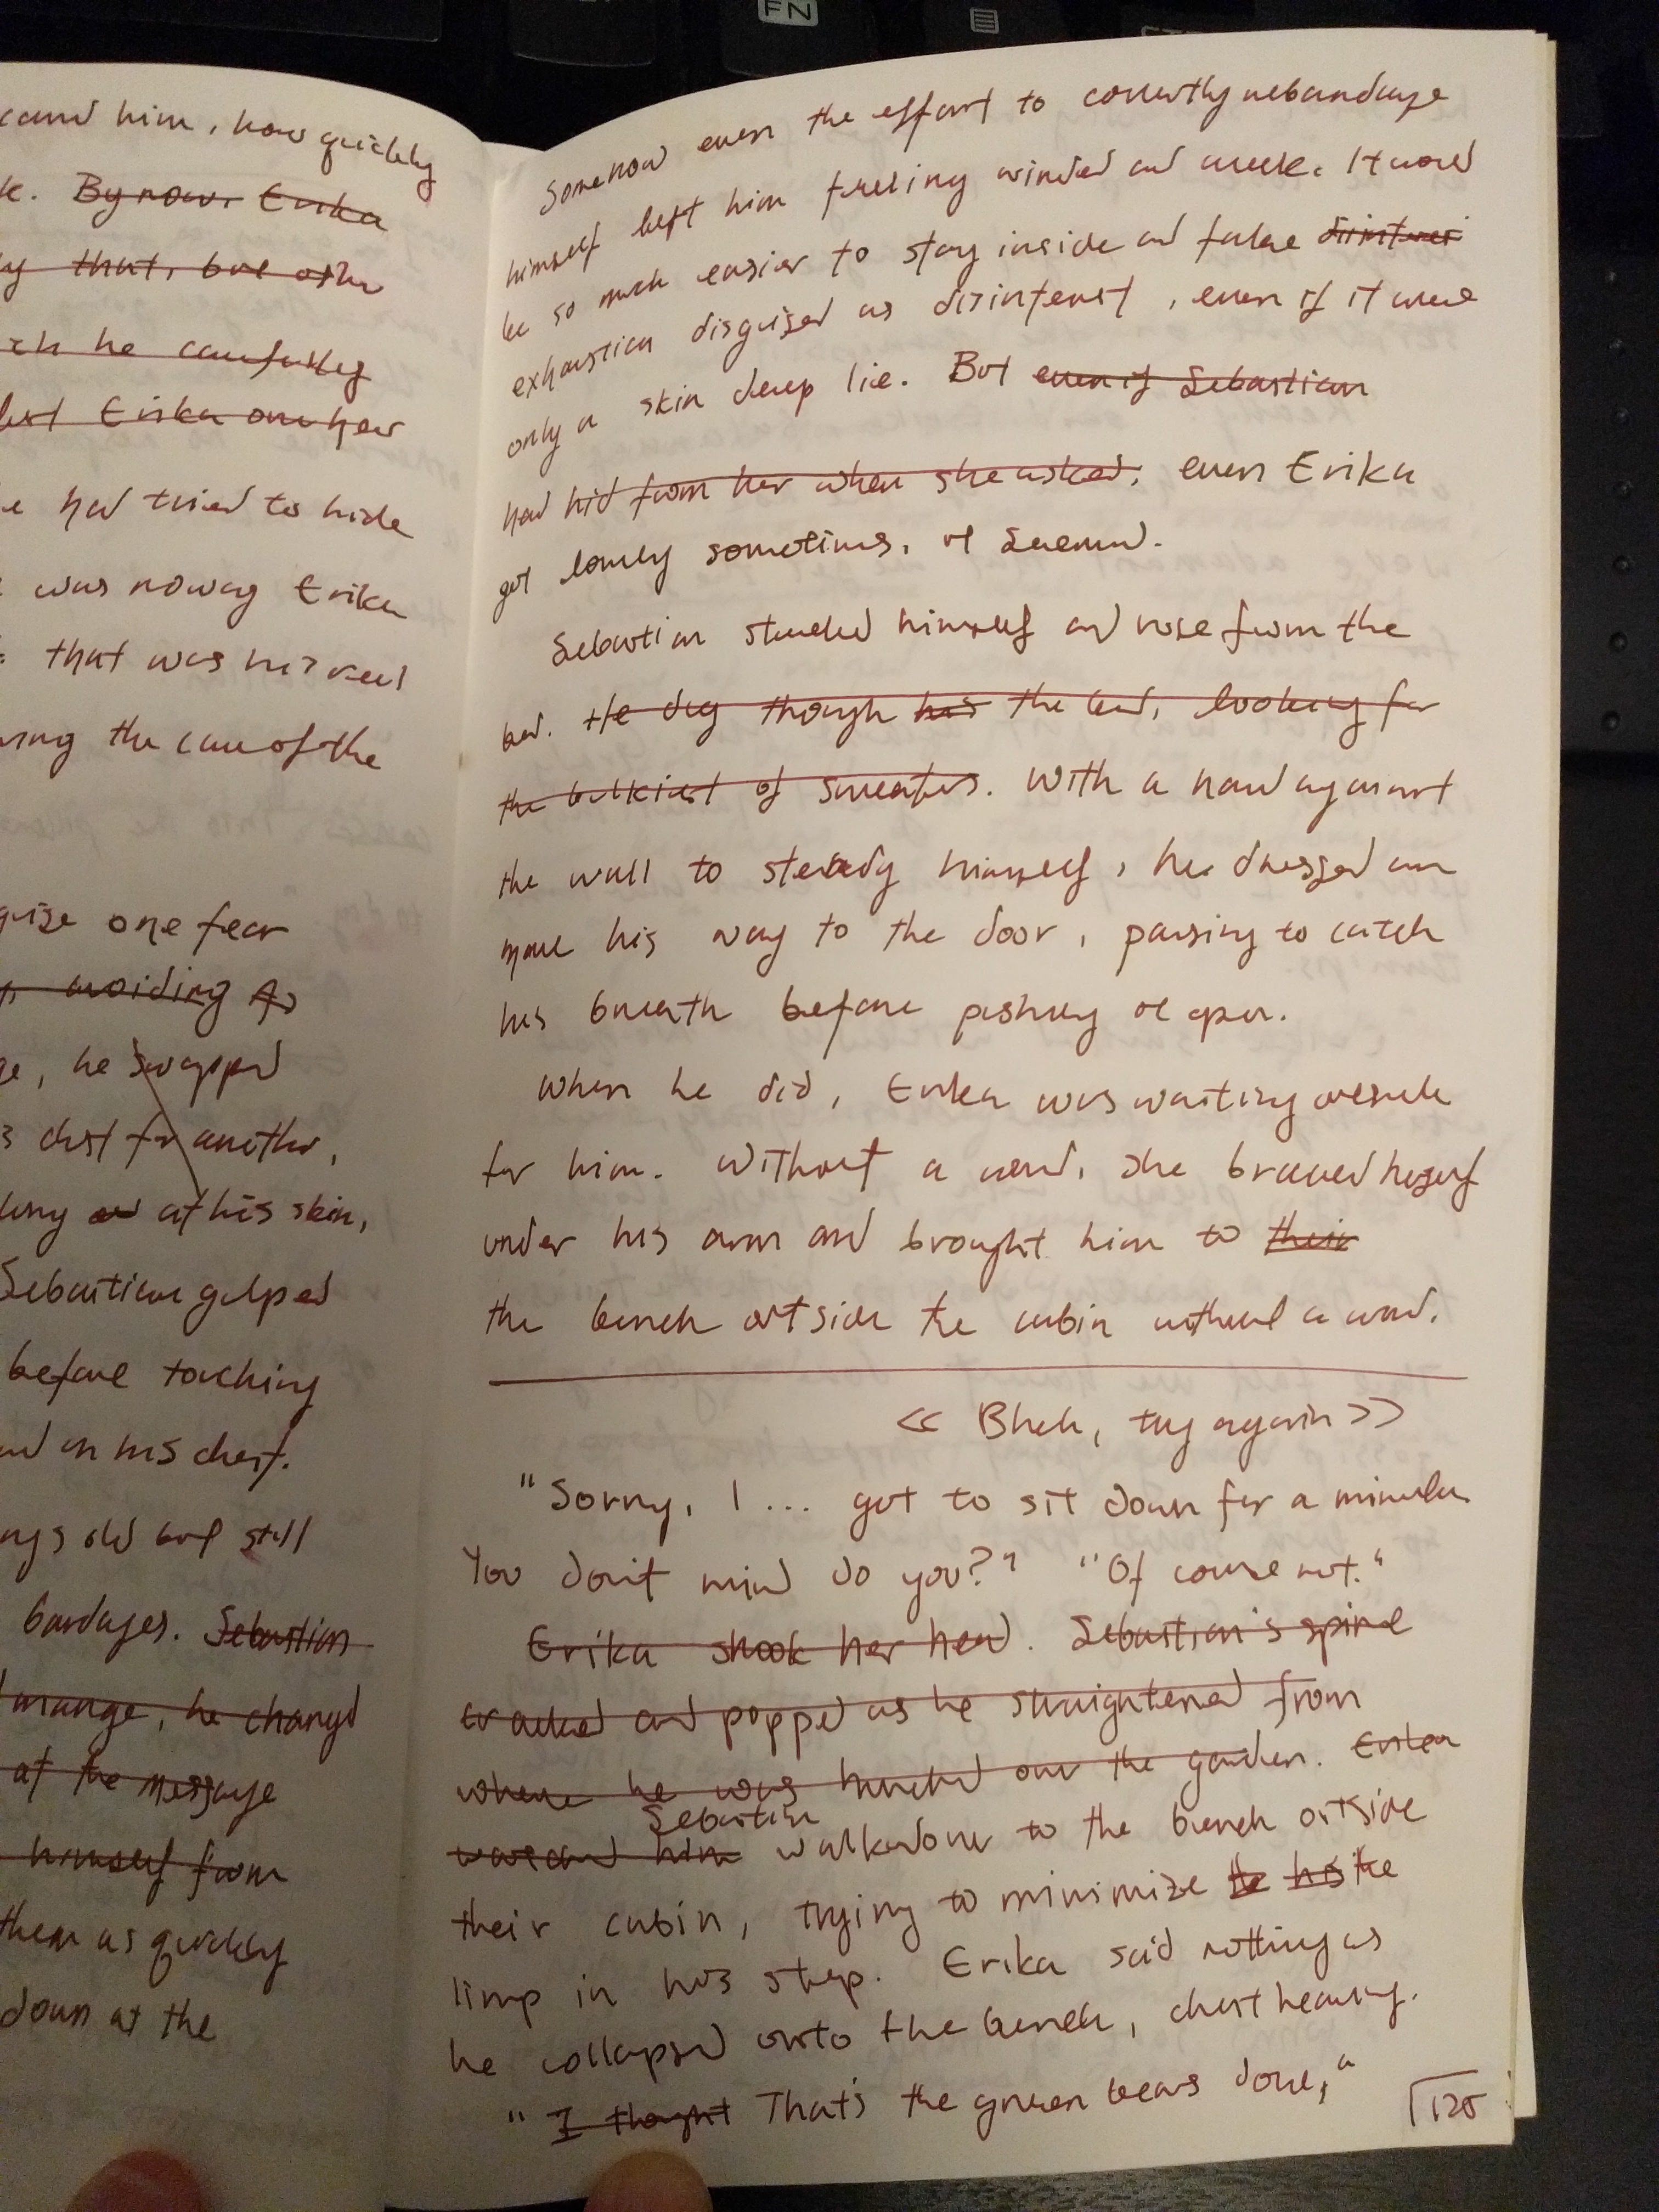 cand him, how quickly
k. By now, Erika
y that, but other
ch he carefully
Erika one hear
e had tried to hide
was noway Erika
that was his real
ring the case of the
guise one fear
avoiding
ge, he swapped
s chest for another,
at his skin,
Sebastian gulped
before touching
and on his chest.
ngs old but still
bandages. Sebastian
mange, he changd
at the message
himself from
them as quickly
down at the
FN
Somehow even the effort to correctly rebandage
himself left him feeling winded and weak. It would
be so much easier to stay inside and fake disinteres
exhaustion disguised as disinterest, even if it were
only a skin deep lie. But even if Sebastian
had hid from her when she asked, even Erika
got lonely sometimes, it seemed.
Sebastian steadied himself and rose from the
bed. He dug though his the bed, looking for
the bulkiest of sweaters. With a hand against
the wall to steady himself, he dressed and
made his way to the door, pausing to catch
his breath before pushing it open.
When he did, Erika was waiting outside
for him. Without a word, she braced herself
under his arm and brought him to their
the bench outside the cabin without a word.
<< Bheh, try again >>
"Sorry, I... got to sit down for a minute.
You don't mind do you?" "Of course not."
Erika shook her head. Sebastian's spine
cracked and popped as he straightened from
where he was hunched over the garden. Erika
Sebastian
watched him walked over to the bench outside
their cabin, trying to minimize the his the
limp in his step. Erika said nothing as
he collapsed onto the bench, chest heaving.
"I thought That's the green beans done,"
125